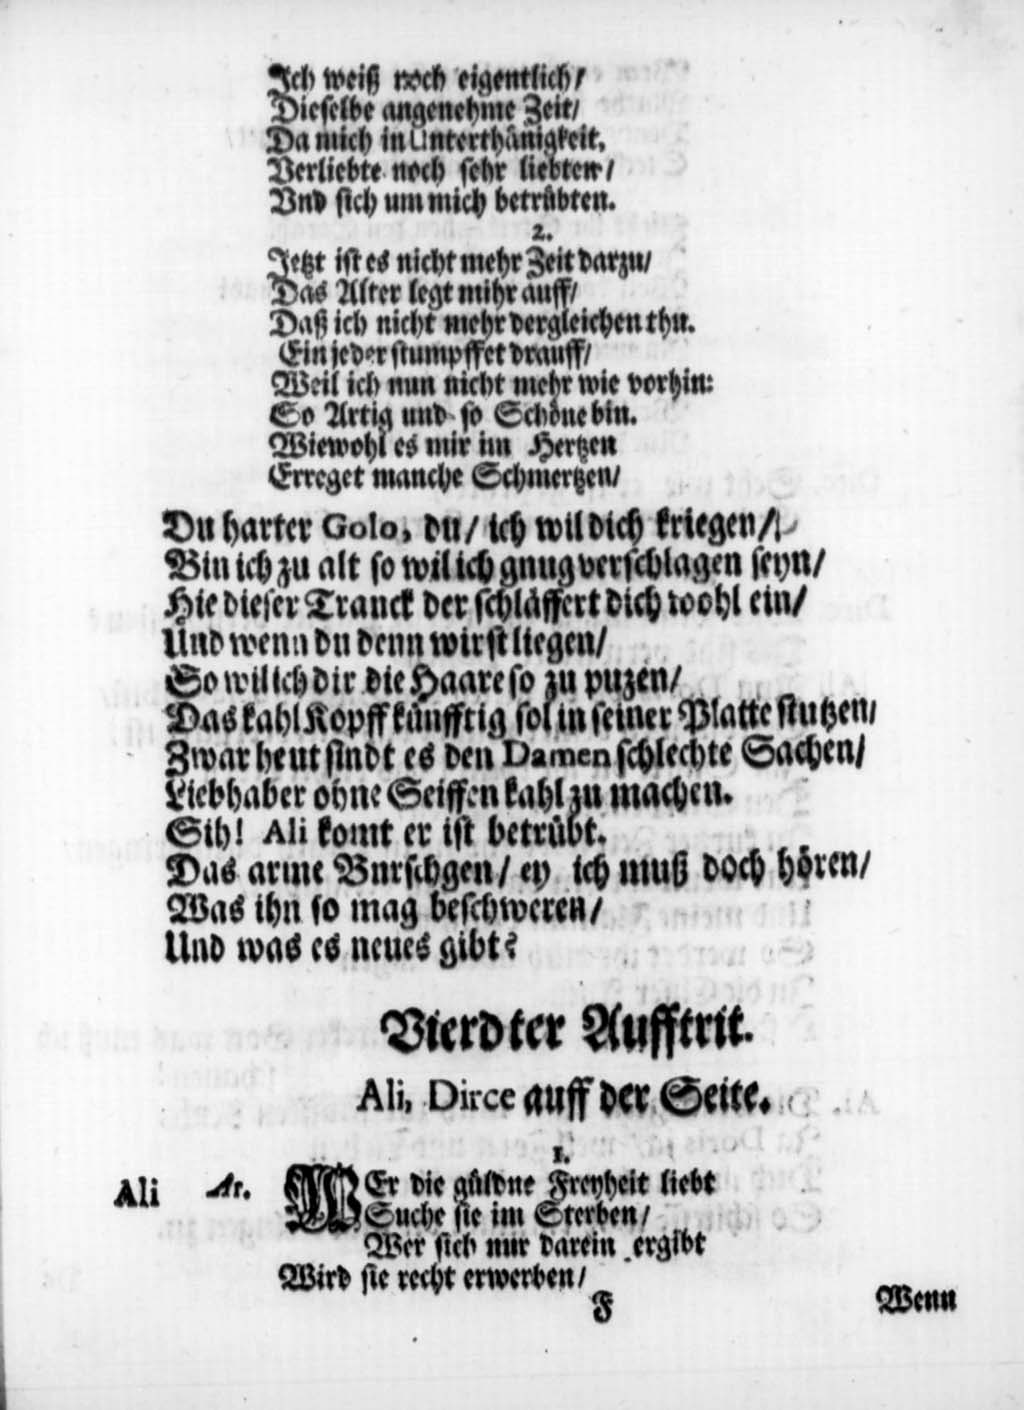 Ich weiß noch eigentlich/
Dieselbe angenehme Zeit/
Da mich in Unterthänigkeit,
Verliebte noch sehr liebten/
Vnd sich um mich betrübten.
2.
Jetzt ist es nicht mehr Zeit darzu/
Das Alter legt mihr auff/
Daß ich nicht mehr dergleichen thu.
Ein jeder stumpffet drauff/
Weil ich nun nicht mehr wie vorhin:
So Artig und so Schöne bin.
Wiewohl es mir im Hertzen
Erreget manche Schmertzen/
Du harter Golo, du/ ich wil dich kriegen/
Bin ich zu alt so wil ich gnug verschlagen seyn/
Hie dieser Tranck der schläffert dich wohl ein/
Und wenn du denn wirst liegen/
So wil ich dir die Haare so zu puzen/
Das kahl Kopff künfftig sol in seiner Platte stutzen/
Zwar heut sindt es den Damen schlechte Sachen/
Liebhaber ohne Seiffen kahl zu machen.
Sih! Ali komt er ist betrübt.
Das arme Burschgen/ ey ich muß doch hören/
Was ihn so mag beschweren/
Und was es neues gibt?
Vierdter Aufftrit.
Ali, Dirce auff der Seite.
1.
Ali Ar. WEr die güldne Freyheit liebt
Suche sie im Sterben/
Wer sich nur darein ergibt
Wird sie recht erwerben/
F Wenn